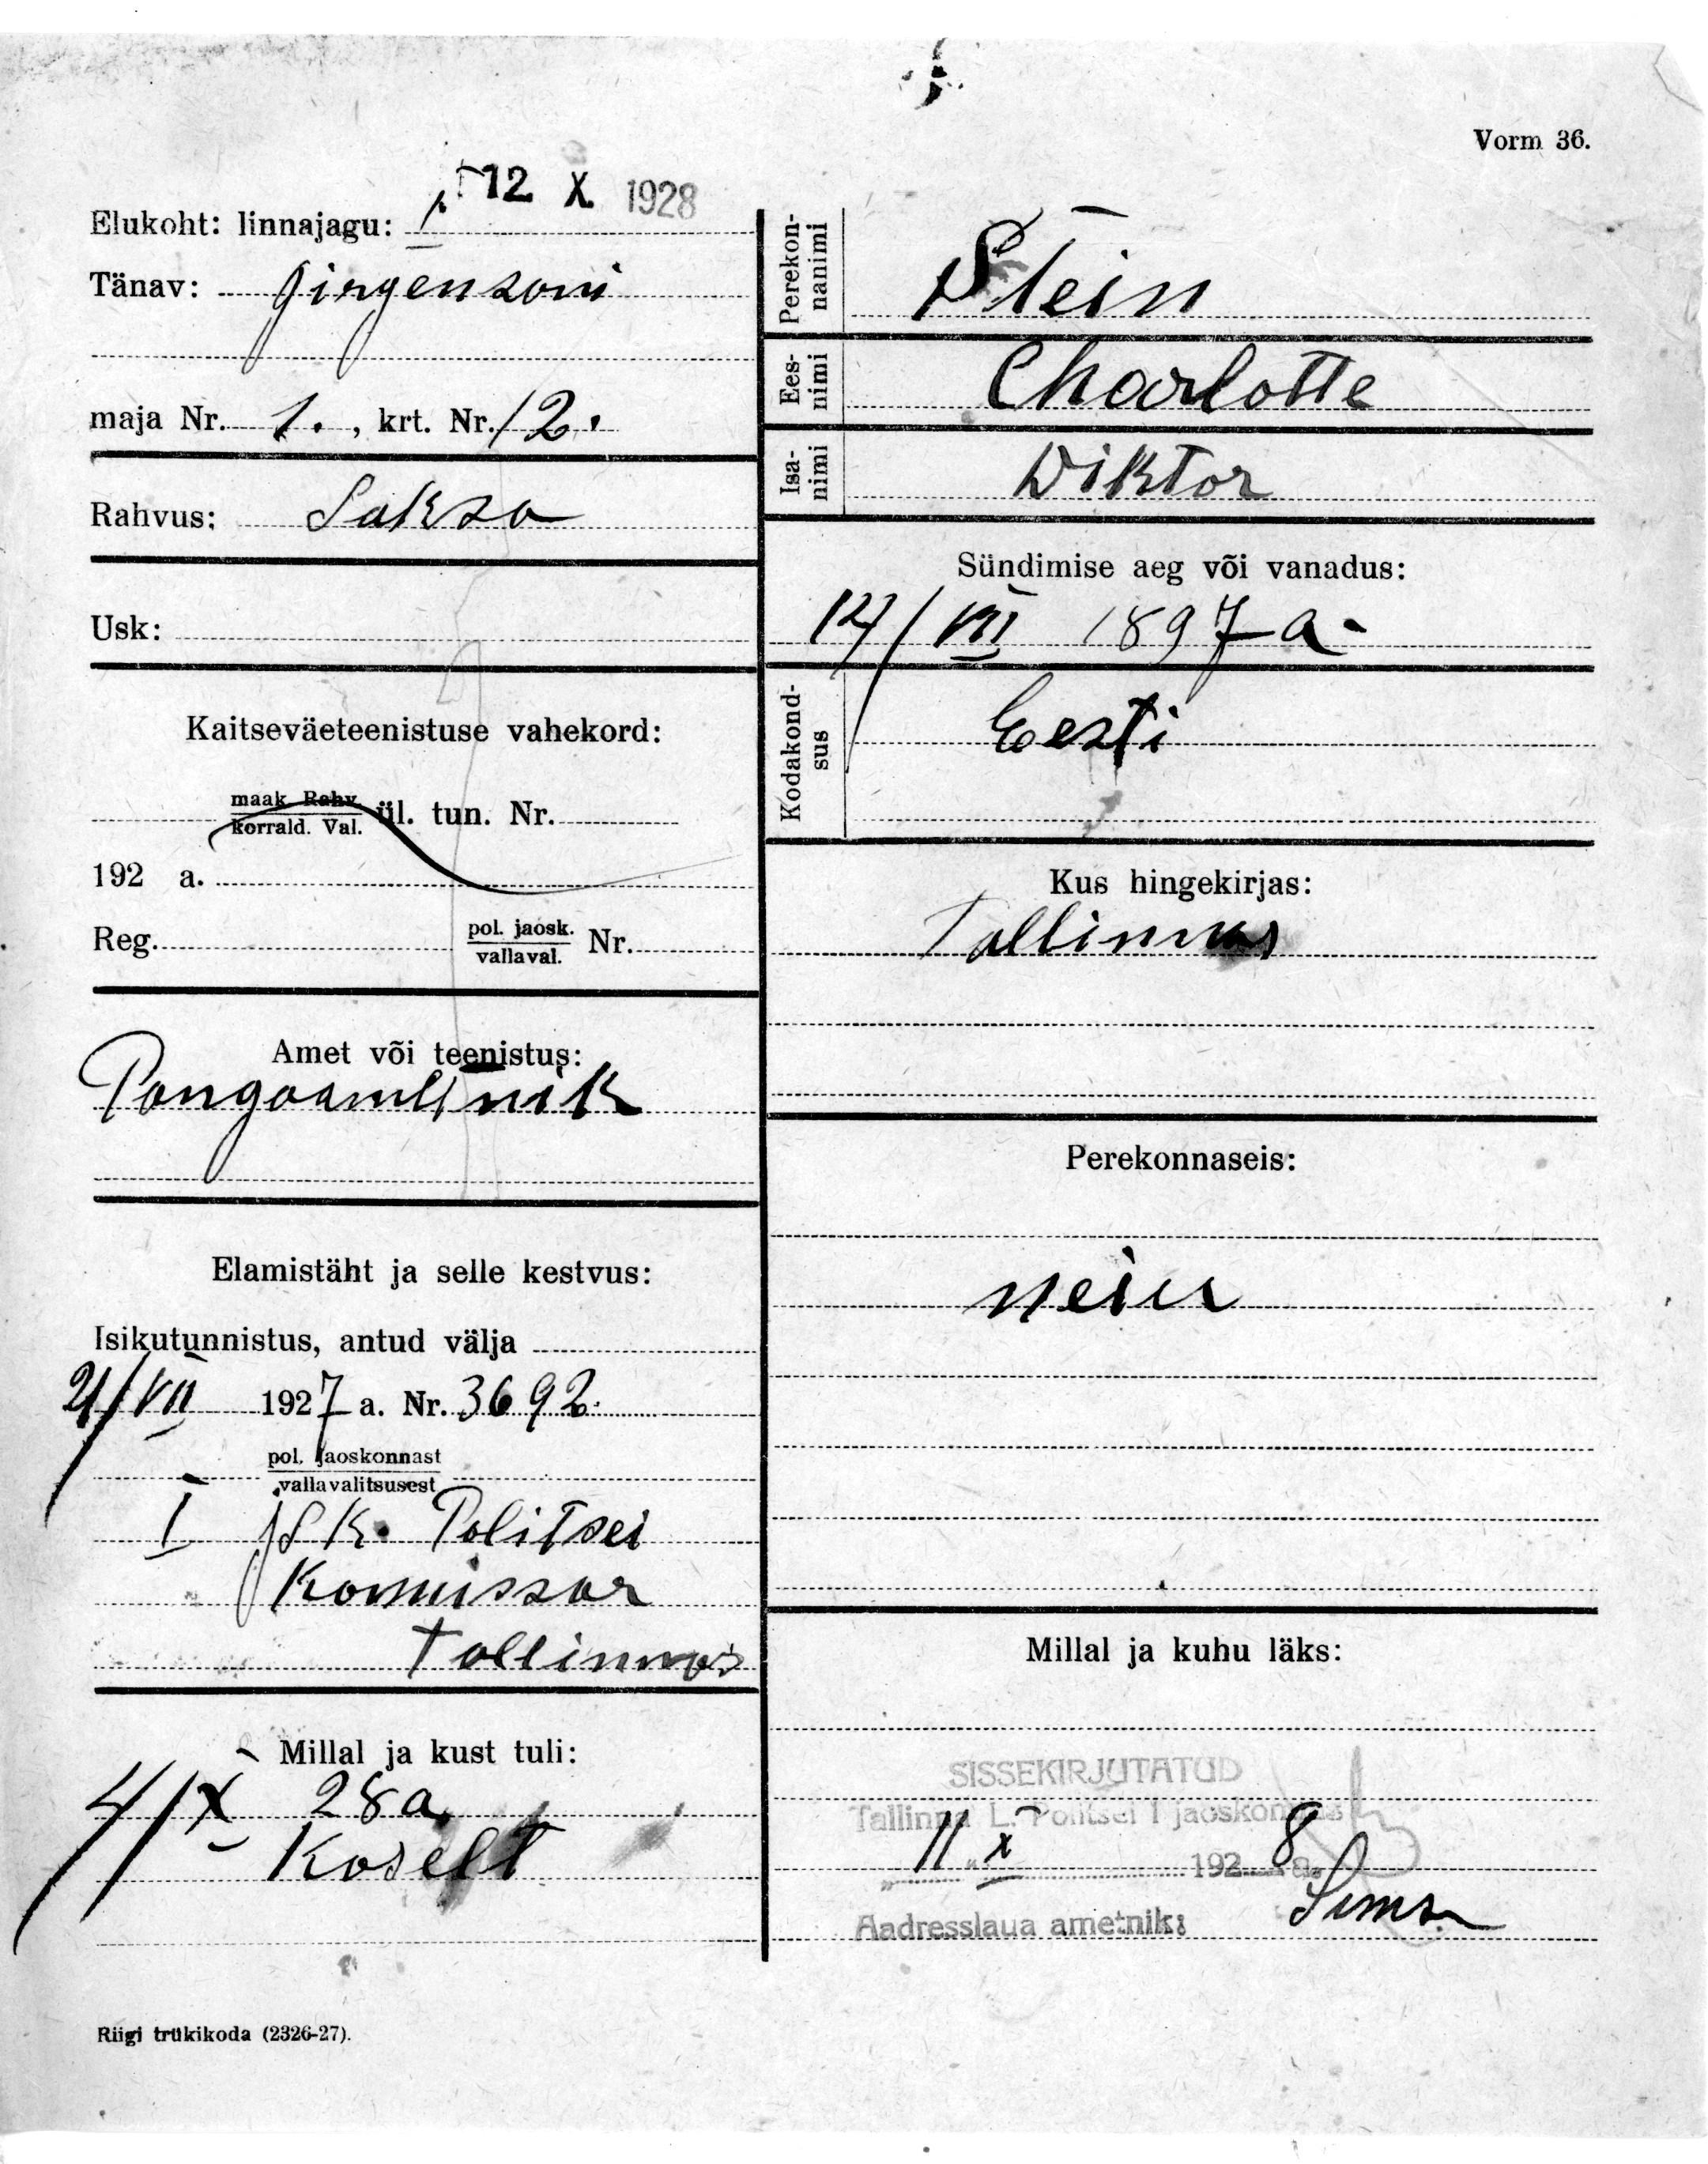 Vorm 36.
12 X 1928
Elukoht: linnajagu: I
Tänav: Girgensoni
maja Nr. 1. , krt. Nr. 12.
Rahvus: Saksa
Usk:
Kaitseväeteenistuse vahekord:
maak. Rahv.
korrald. Val. ül. tun. Nr.
192 a.
Reg. pol. jaosk.
vallaval. Nr.
Amet või teenistus:
Pangaametnik
Elamistäht ja selle kestvus:
Isikutunnistus, antud välja
21/VII 1927 a. Nr. 3692.
pol. jaoskonnast
vallavalitsusest
I jsk. Politsei
Komissar
Tallinnas
Millal ja kust tuli:
4/X 28 a.
Koselt
Riigi trükikoda (2326-27).
Perekon-
nanimi
Stein
Ees-
nimi
Charlotte
Isa-
nimi
Wiktor
Sündimise aeg või vanadus:
14/VII 1897 a.
Kodakond-
sus
Eesti
Kus hingekirjas:
Tallinnas
Perekonnaseis:
neiu
Millal ja kuhu läks:
SISSEKIRJUTATUD
Tallinna L. Politsei I jaoskonnas
"11" X 1928 a.
Aadresslaua ametnik: